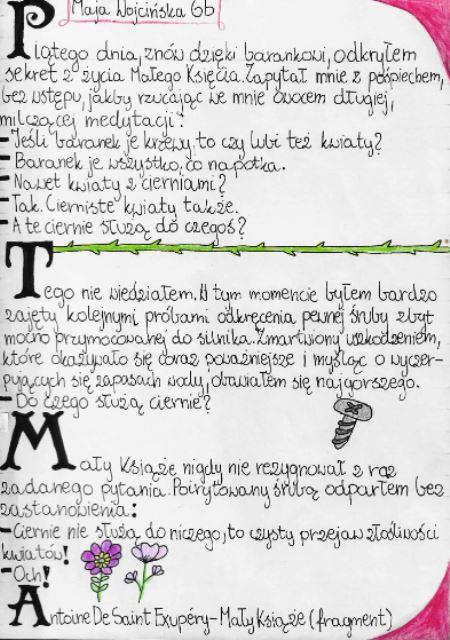 Maja Wojcińska 6b
Piątego dnia, znów dzięki barankowi, odkryłem
sekret z życia Małego Księcia. Zapytał mnie z pośpiechem,
bez wstępu, jakby rzucając we mnie owocem długiej,
milczącej medytacji:
- Jeśli baranek je krzewy, to czy lubi też kwiaty?
- Baranek je wszystko, co napotka.
- Nawet kwiaty z cierniami?
- Tak. Cierniste kwiaty także.
- A te ciernie służą do czegoś?
Tego nie wiedziałem. W tym momencie byłem bardzo
zajęty kolejnymi próbami odkręcenia pewnej śruby zbyt
mocno przymocowanej do silnika. Zmartwiony uszkodzeniem,
które okazywało się coraz poważniejsze i myśląc o wyczer-
pujących się zapasach wody, obawiałem się najgorszego.
- Do czego służą ciernie?
Mały Książę nigdy nie rezygnował z raz
zadanego pytania. Poirytowany śrubą odparłem bez
zastanowienia:
- Ciernie nie służą do niczego, to czysty przejaw złośliwości
kwiatów!
- Och!
Antoine De Saint Exupéry - Mały Książę (fragment)